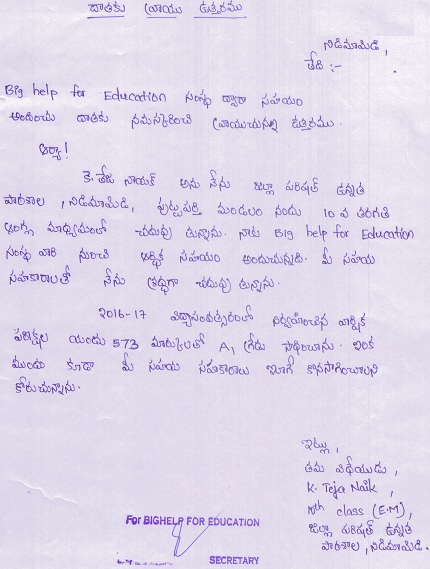 దాతకు వ్రాయు ఉత్తరము
నిడిమామిడి,
తేది :-
Big help for Education సంస్థ ద్వారా సహయం
అందించు దాతకు నమస్కరించి వ్రాయుచున్న ఉత్తరము.
ఆర్యా!
కె. తేజ నాయక్ అను నేను జిల్లా పరిషత్ ఉన్నత
పాఠశాల, నిడిమామిడి, పుట్టపర్తి మండలం నందు 10 వ తరగతి
ఆంగ్ల మాధ్యమంలో చదువు తున్నాను. నాకు Big help for Education
సంస్థ వారి నుంచి ఆర్థిక సహయం అందుచున్నది. మీ సహయ
సహకారాలతో నేను శ్రద్ధగా చదువు తున్నాను.
2016-17 విద్యాసంవత్సరంలో నిర్వహించిన వార్షిక
పరీక్షల యందు 573 మార్కులతో A1 గ్రేడు సాధించాను. ఇంక
ముందు కూడా మీ సహయ సహకారాలు ఇలాగే కొనసాగించాలని
కోరుచున్నాను.
ఇట్లు,
తమ విధేయుడు,
K. Teja Naik,
10th class (E.M),
జిల్లా పరిషత్ ఉన్నత
పాఠశాల, నిడిమామిడి.
For BIGHELP FOR EDUCATION
SECRETARY